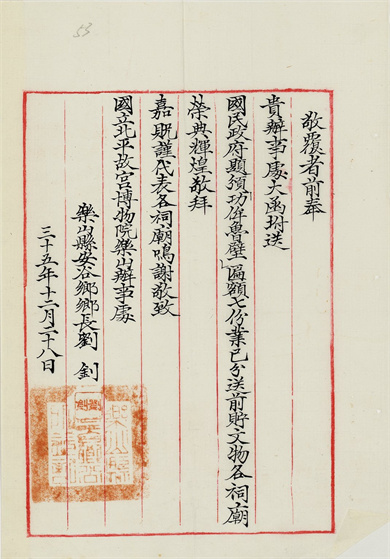 53
敬覆者前奉
貴辦事處大函坿送
國民政府題頒功侔魯壁匾額七份業已分送前貯文物各祠廟
榮典輝煌敬拜
嘉貺謹代表各祠廟鳴謝敬致
國立北平故宮博物院樂山辦事處
樂山縣安谷鄉鄉長劉釗
三十五年十二月二十八日